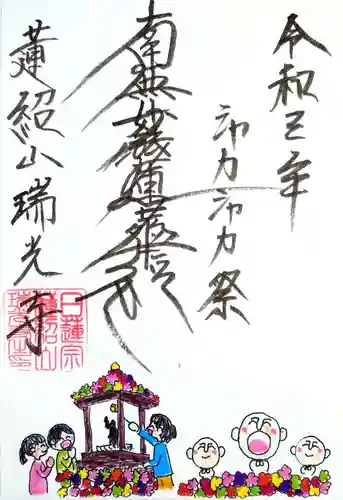 令和五年
祭
南無妙法蓮華経
蓮紹山瑞光寺
日蓮宗
蓮紹山
瑞光寺印